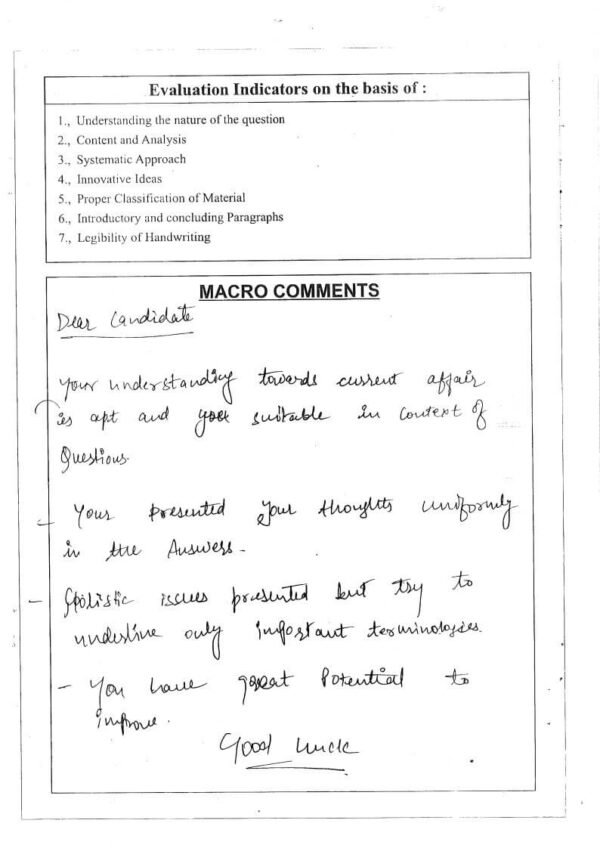 Evaluation Indicators on the basis of :
1., Understanding the nature of the question
2., Content and Analysis
3., Systematic Approach
4., Innovative Ideas
5., Proper Classification of Material
6., Introductory and concluding Paragraphs
7., Legibility of Handwriting
MACRO COMMENTS
Dear Candidate
Your understanding towards current affair
is apt and suitable in context of
Questions.
- Your presented your thoughts uniformly
in the Answers -
- issues presented but try to
underline only important terminologies.
- You have great Potential to
improve.
Good luck